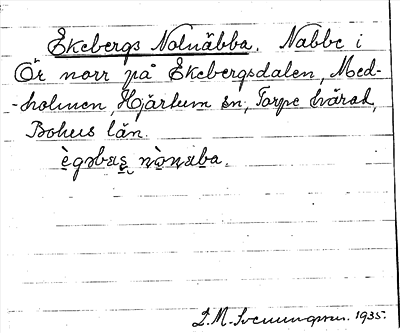 Ekebergs Nolnäbba. Nabbe i
Ör norr på Ekebergsdalen, Med-
-holmen, Hjärtum sn, Torpe härad,
Bohus län.
D. M. Svenningsson. 1935.